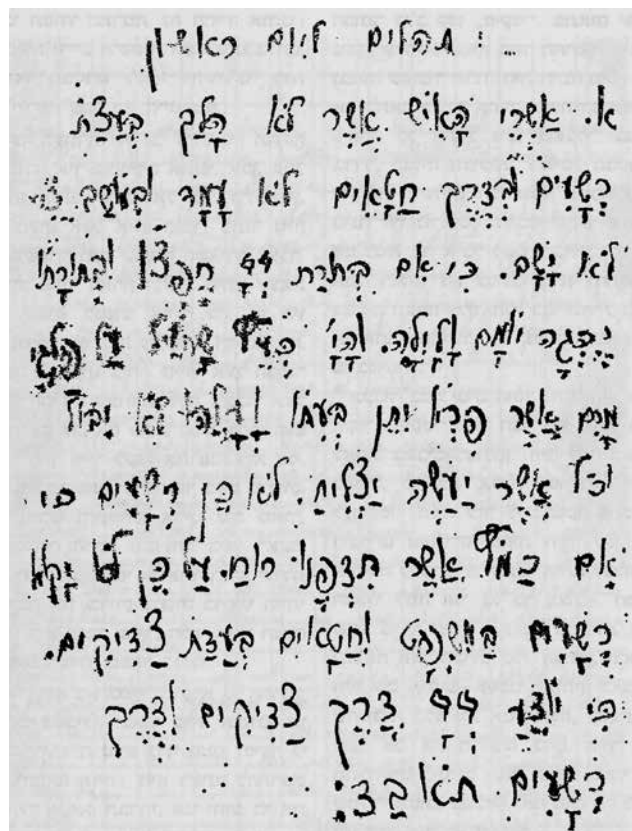 תהלים ליום ראשון
א. אשרי האיש אשר לא הלך בעצת
רשעים ובדרך חטאים לא עמד
לא ישב. כי אם בתרת יי חפצו ובתורתו
יהגה יומם ולילה. והי' כעץ שתול על פלגי
מים אשר פריו יתן בעתו ועלהו לא יבול
וכל אשר יעשה יצליח. לא כן רשעים כי
אם כמץ אשר תדפנו רוח. על כן לא יקמו
רשעים במשפט וחטאים בעדת צדיקים.
כי יי דרך צדיקים ודרך
רשעים תאבד: